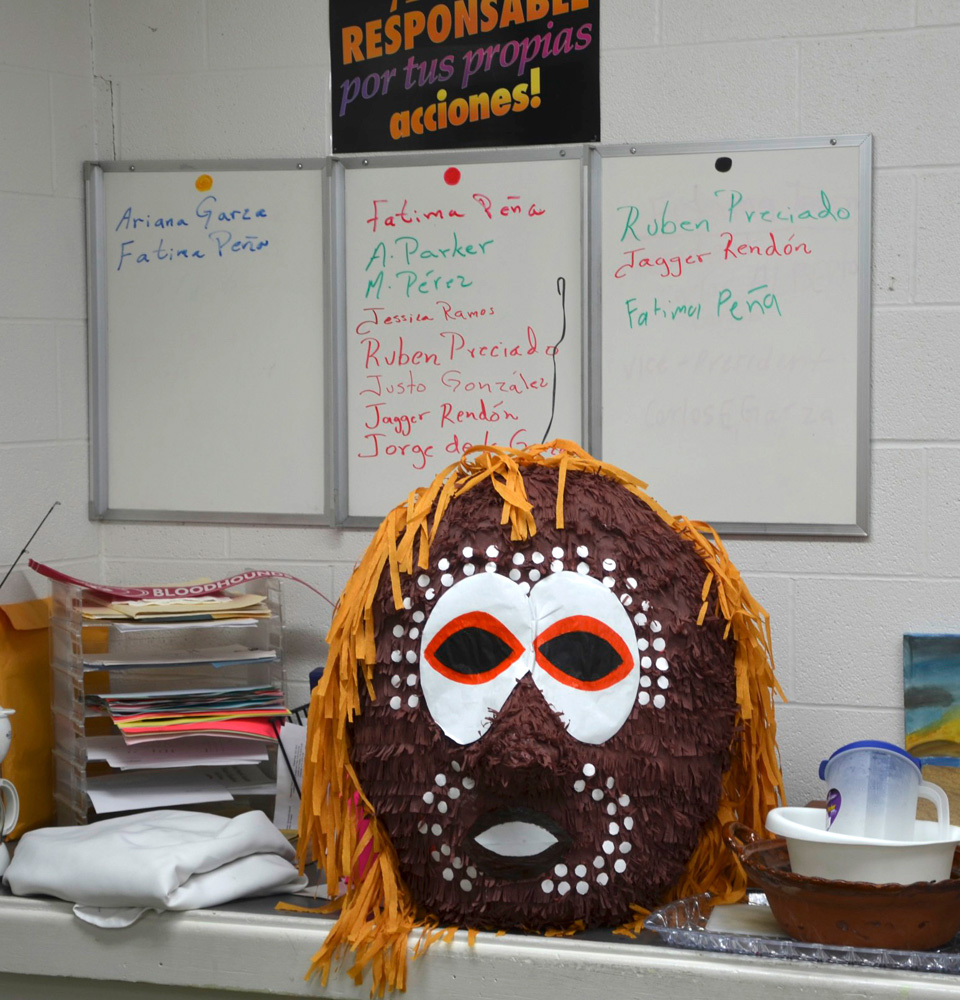 RESPONSABLE
por tus propias
acciones!
Ariana Garza
Fatima Peña
Fatima Peña
A. Parker
M. Pérez
Jessica Ramos
Ruben Preciado
Justo González
Jagger Rendón
Jorge de la
Ruben Preciado
Jagger Rendón
Fatima Peña
BLOODHOUNDS